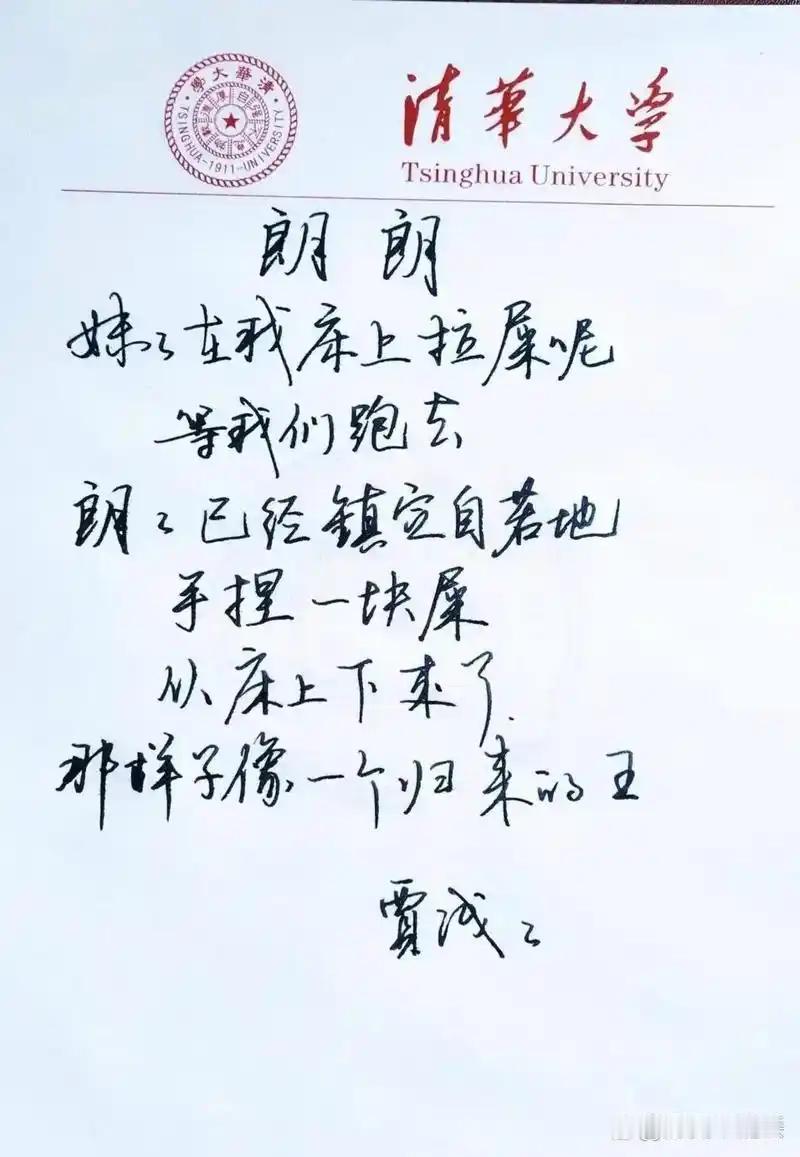 清华大学
TSINGHUA-1911-UNIVERSITY
清華大学
Tsinghua University
朗 朗
妹々在我床上拉屎呢
等我们跑去
朗々已经镇定自若地
手捏一块屎
从床上下来了.
那样子像一个归来的王
贾浅々